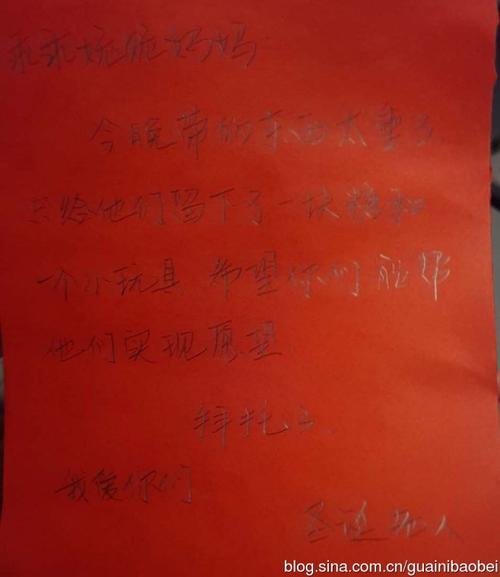 乖乖婉婉妈妈
今晚带的东西太重了
只给他们留下了一块糖和
一个小玩具 希望你们能帮
他们实现愿望
拜托了
我爱你们
圣诞老人
blog.sina.com.cn/guainibaobei